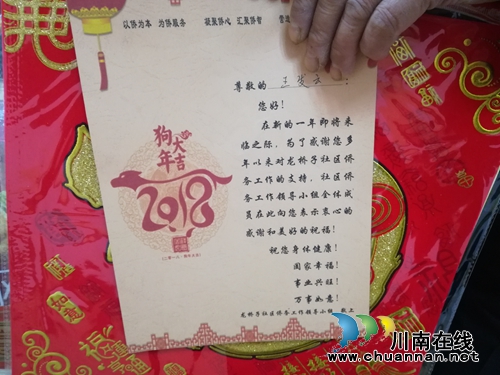 认侨为本 为侨服务 凝聚侨心 汇聚侨智
尊敬的
您好!
在新的一年即将来
临之际,为了感谢您多
年以来对龙桥子社区侨
务工作的支持,社区侨
务工作领导小组全体成
员在此向您表示衷心的
感谢和美好的祝福!
祝您身体健康!
阖家幸福!
事业兴旺!
万事如意!
龙桥子社区侨务工作领导小组
狗年大吉
2018
川南在线
www.chuannan.net